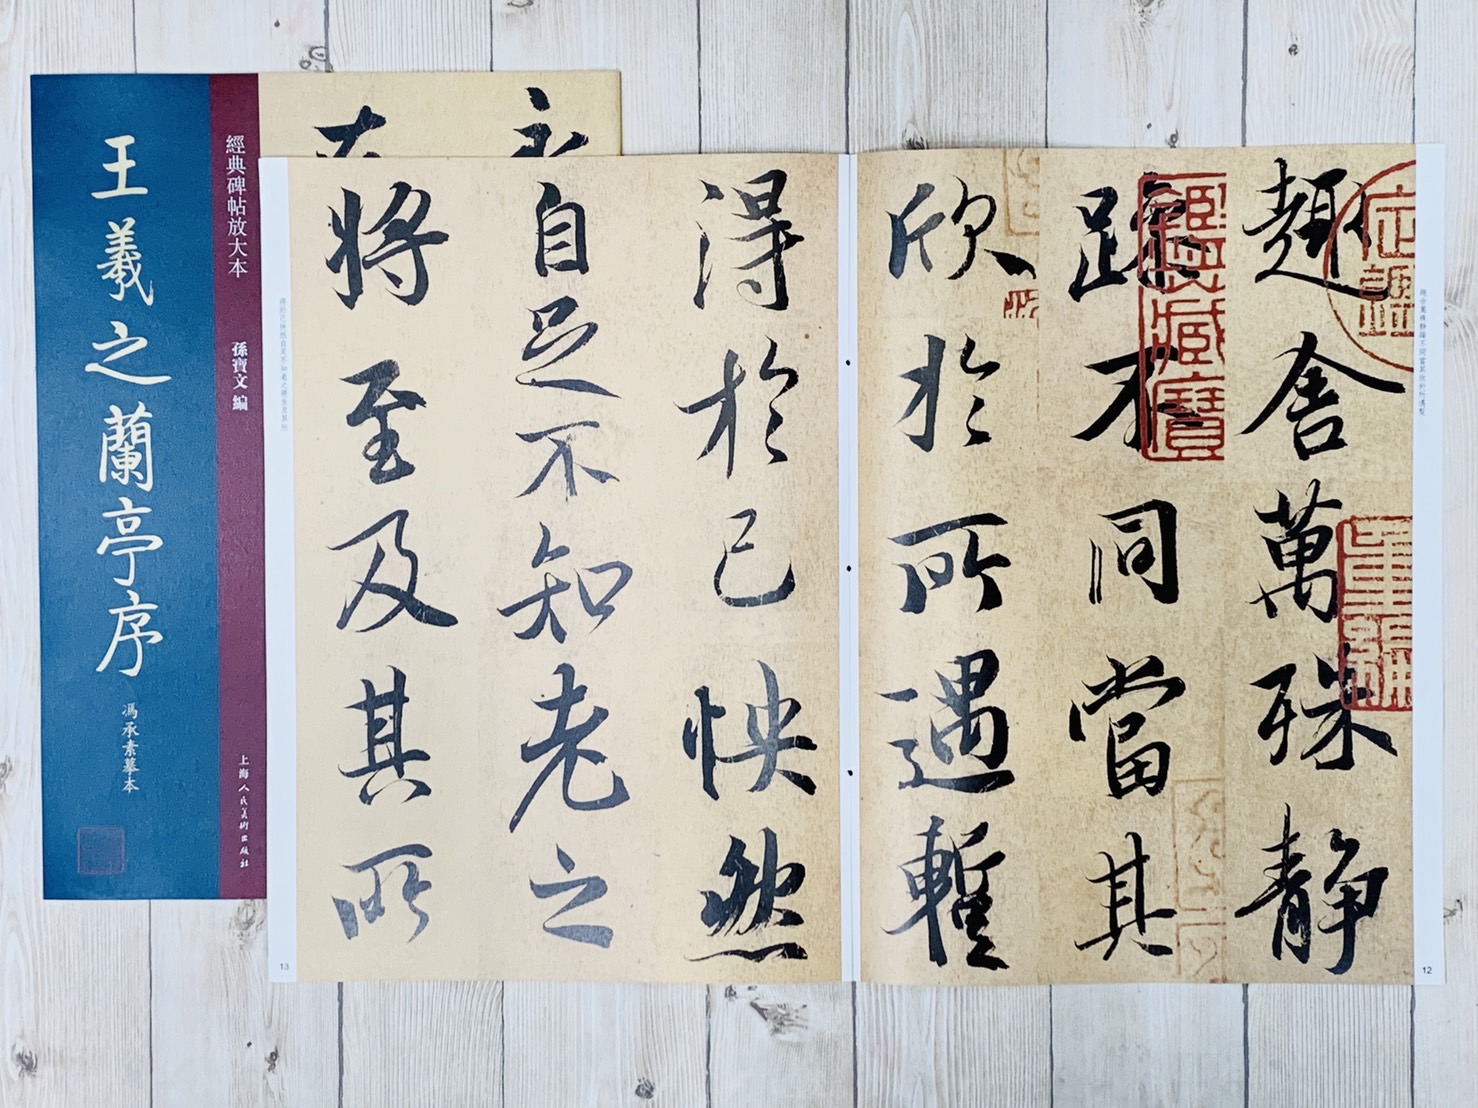 王羲之蘭亭序
馮承素摹本
經典碑帖放大本
孫寶文 編
上海人民美術出版社
永
趣舍萬殊静
躁不同當其
欣於所遇暫
得於己怏然
自足不知老之
將至及其所
定鑑
重編
鑑藏寶
12
13